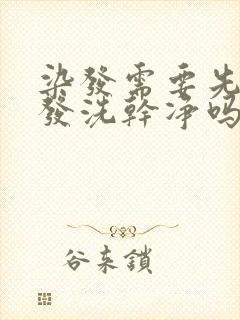 染發需要先
發洗幹凈嗎
谷未鎖